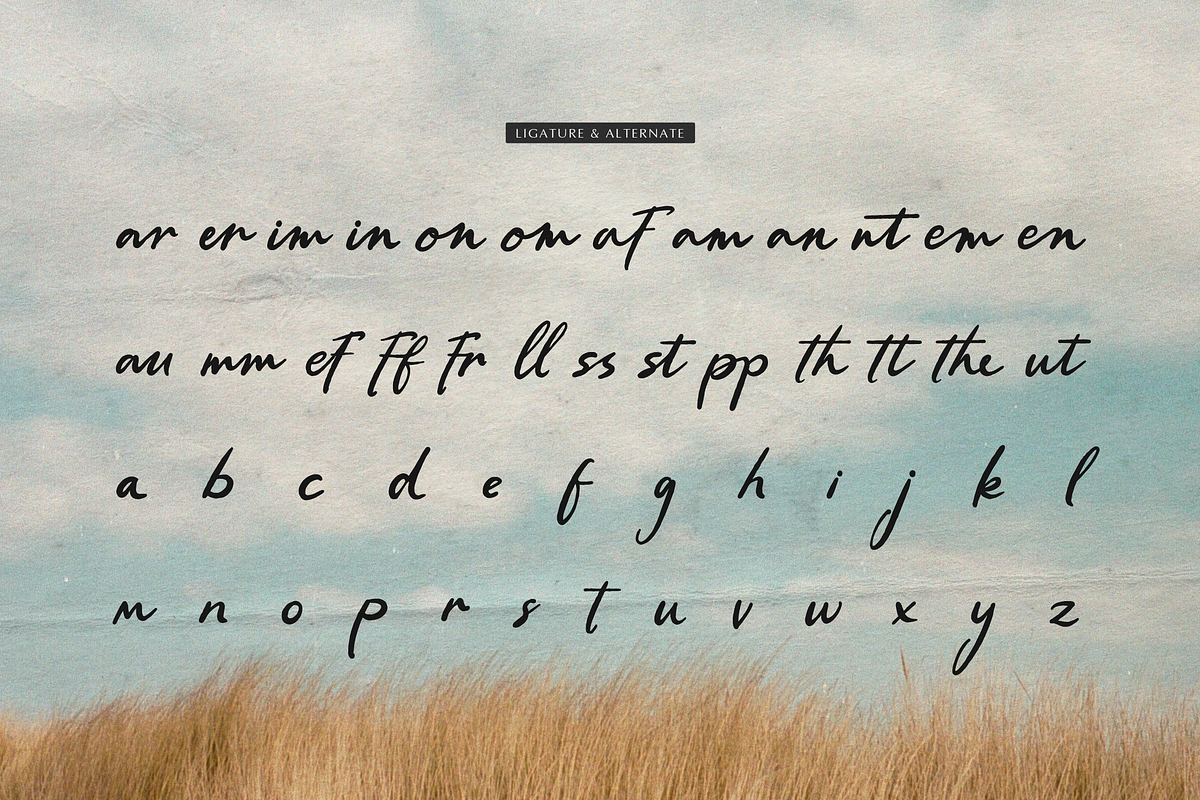 LIGATURE & ALTERNATE
ar er im in on om af am an nt em en
au mm ef ff fr ll ss st pp th tt the ut
a b c d e f g h i j k l
m n o p r s t u v w x y z